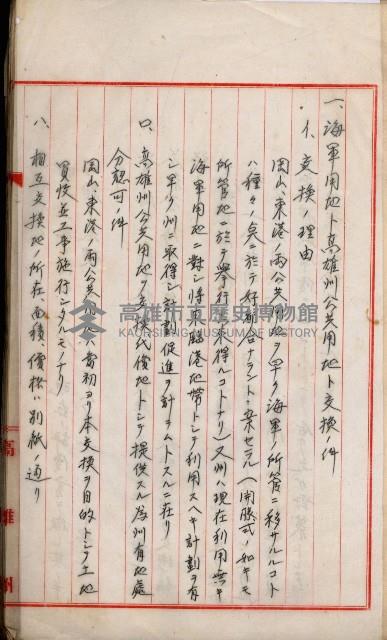 一、海軍用地ト高雄州公共用地ト交換ノ件
イ、交換ノ理由
岡山、東港ノ両公共用地ヲ早ク海軍ノ所管ニ移サルルコト
ハ種々ノ点ニ於テ好都合ナラント案セラル(開隊式ノ如キモ
所管地ニ於テ挙行出来得ルコトナリ)又州ハ現在利用無キ
海軍用地ニ対シ将来臨港地帯トシテ利用スヘキ計劃ヲ有
シ早ク州ニ取得シ計劃促進ヲ計ラムトスルニ在リ
ロ、高雄州公共用地ヲ交換代償地トシテ提供スル為州有地處
分認可ノ件
岡山、東港ノ両公共用地ハ當初ヨリ本交換ヲ目的トシテ土地
買收並工事施行シタルモノナリ
ハ、相互交換地ノ所在、面積、價格ハ別紙ノ通リ
高雄州
高雄市立歷史博物館
KAOHSIUNG MUSEUM OF HISTORY